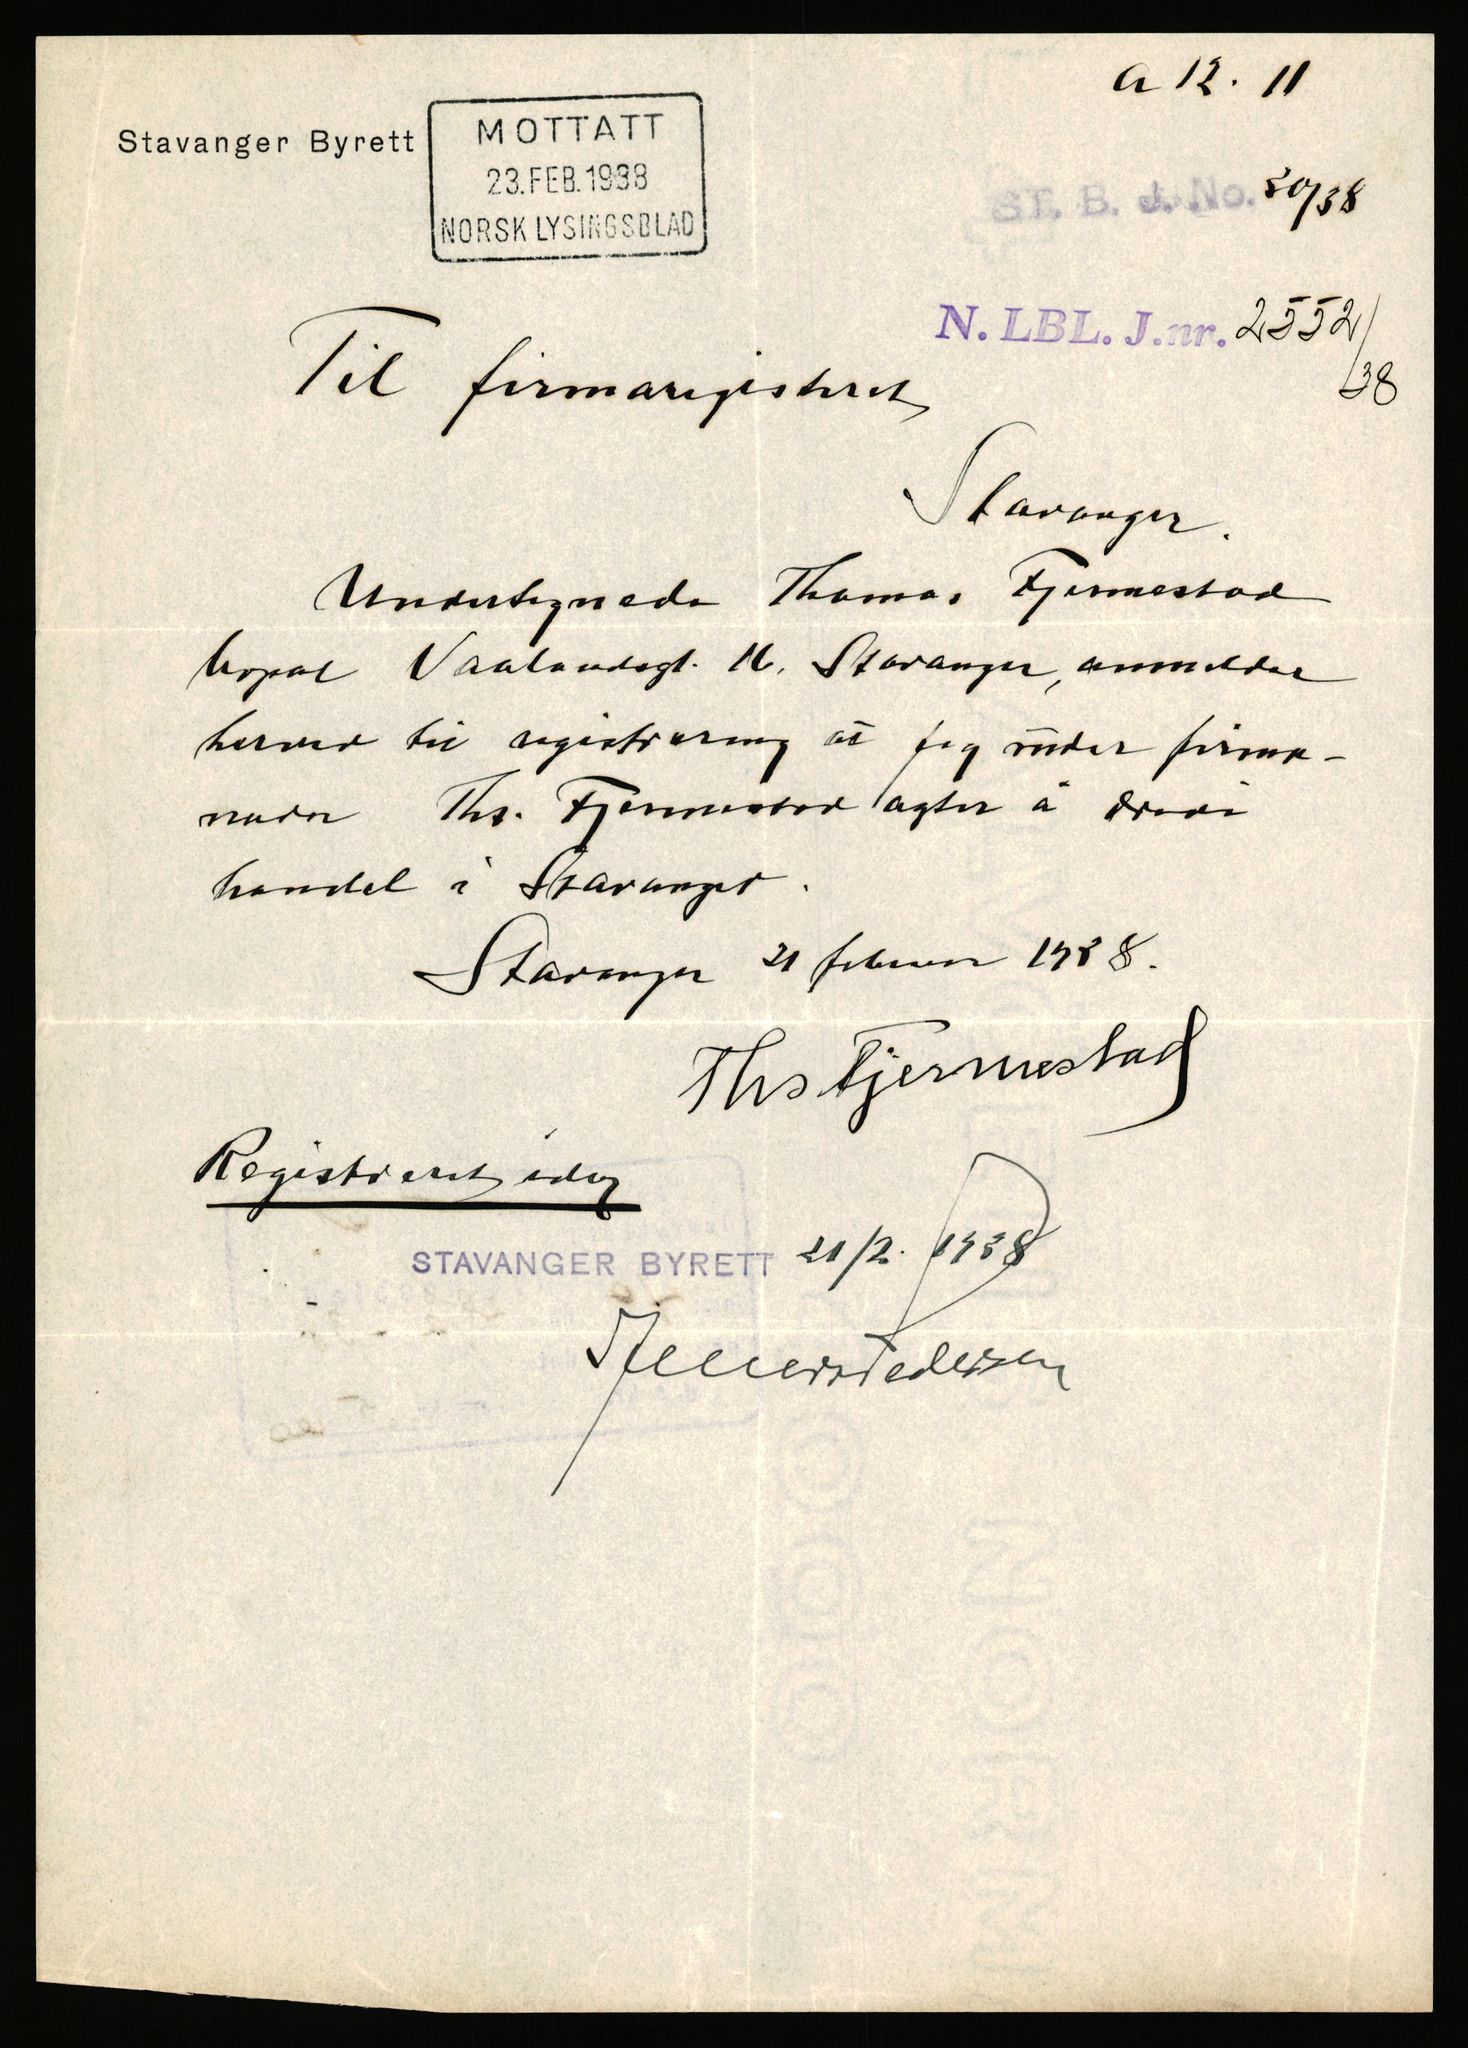 a 12. 11
Stavanger Byrett
MOTTATT
23. FEB. 1938
NORSK LYSINGSBLAD
ST. B. J. No. 20/38
N. LBL. J.nr. 2552/38
Til firmaregisteret,
Stavanger.
Undertegnede Thomas Fjermestad
bopæl Vaalandsgt. 16, Stavanger, anmelder
herved til registrering at jeg under firma-
navn Ths. Fjermestad agter å drive
handel i Stavanger.
Stavanger 21 februar 1938.
Ths Fjermestad
Registreret idag
STAVANGER BYRETT 21/2. 1938
Pedersen